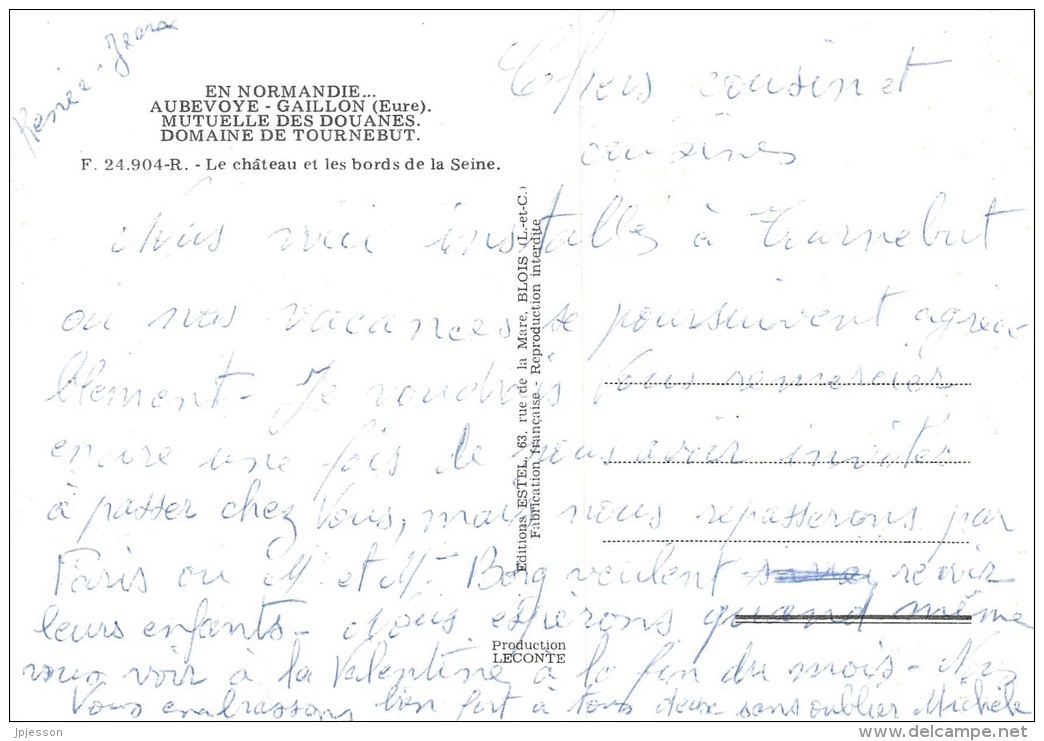 Renée - Jean
EN NORMANDIE...
AUBEVOYE - GAILLON (Eure).
MUTUELLE DES DOUANES.
DOMAINE DE TOURNEBUT.
F. 24.904-R. - Le château et les bords de la Seine.
Chers cousin et
cousines
Nous voici installés à Tournebut
ou nos vacances se poursuivent agréa
blement - Je voudrais vous remercier
encore une fois de nous avoir invités
à passer chez Vous, mais nous repasserons par
Paris ou Mr et Mme Borg veulent revoir
leurs enfants - Nous espèrons quand même
vous voir à la Valentine à la fin du mois - Nous
Vous embrassons bien fort à tous deux sans oublier Michèle
Editions ESTEL, 63, rue de la Mare, BLOIS (L.-et-C.)
Fabrication française. Reproduction interdite
Production
LECONTE
jpjesson
www.delcampe.net